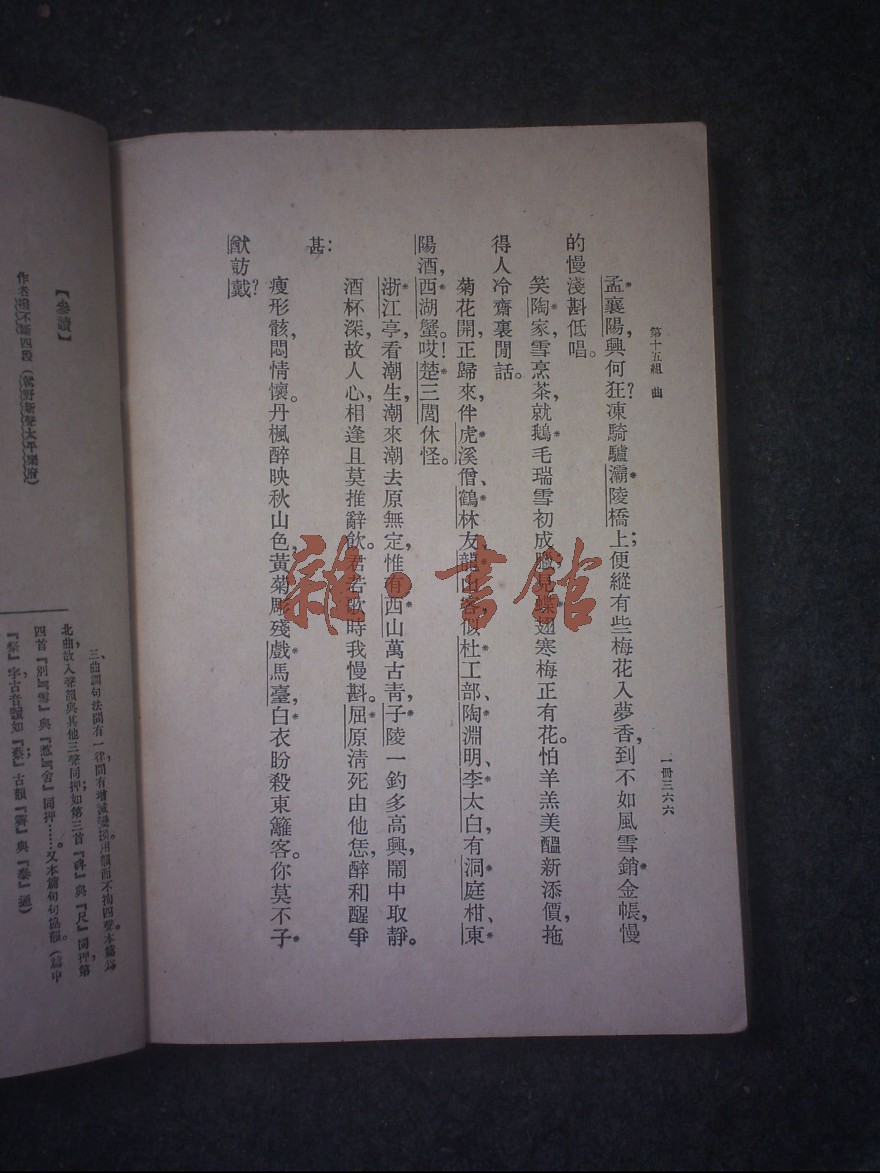 第十五組　曲
一冊三六六
孟襄陽，興何狂？凍騎驢灞陵橋上；便縱有些梅花入夢香，到不如風雪銷金帳，慢
的慢淺斟低唱。
笑陶家，雪烹茶，就鵝毛瑞雪初成臘，見蝶翅寒梅正有花。怕羊羔美醞新添價，拖
得人冷齋裏閒話。
菊花開，正歸來，伴虎溪僧、鶴林友、龍山客，似杜工部、陶淵明、李太白，有洞庭柑、東
陽酒、西湖蟹。哎！楚三閭休怪。
浙江亭，看潮生，潮來潮去原無定，惟有西山萬古青，子陵一釣多高興，鬧中取靜。
酒杯深，故人心，相逢且莫推辭飲。君若歌時我慢斟。屈原清死由他恁，醉和醒爭
甚：
瘦形骸，悶情懷。丹楓醉映秋山色，黃菊彫殘戲馬臺，白衣盼殺東籬客。你莫不子
猷訪戴？
雜·書館
三曲調句法間有一律，間有增減變換，用韻而不拘四聲，本篇為
北曲，故入聲韻與其他三聲同押；如第三首『碑』與『尺』同押，第
四首『別』『雪』與『惹』『舍』同押……。又本篇句句協韻。（篇中
【參讀】